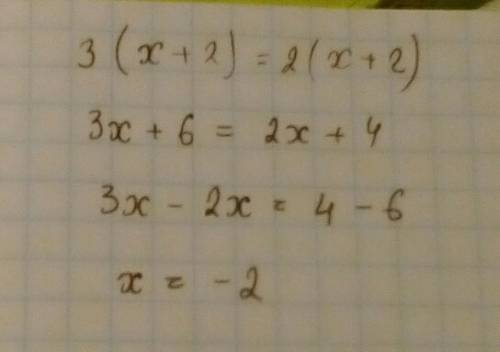 3 (x + 2) = 2 (x + 2)
3x + 6 = 2x + 4
3x - 2x = 4 - 6
x = -2